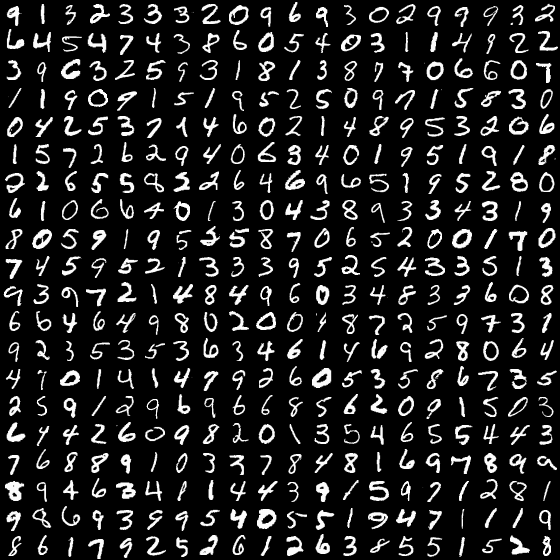 9 1 3 2 3 3 3 2 0 9 6 9 3 0 2 9 9 9 3 2
6 4 5 4 7 4 3 8 6 0 5 4 0 3 1 1 4 9 2 2
3 9 6 3 2 5 9 3 1 8 1 3 8 7 7 0 6 6 0 7
1 1 9 0 9 1 5 1 9 5 2 5 0 9 7 1 5 8 3 0
0 4 2 5 3 7 1 4 6 0 2 1 4 8 9 5 3 2 0 6
1 5 7 2 6 2 9 4 0 6 3 4 0 1 9 5 1 9 1 8
2 2 6 5 5 8 2 2 6 4 6 9 6 5 1 9 5 2 8 0
6 1 0 6 6 4 0 1 3 0 4 3 8 9 3 3 4 3 1 9
8 0 5 9 1 9 5 2 5 8 7 0 6 5 2 0 0 1 7 0
7 4 5 9 5 2 1 3 3 3 9 5 2 5 4 3 3 5 1 3
9 3 9 7 2 1 4 8 4 9 6 0 3 4 8 3 3 6 0 8
6 6 4 6 4 9 8 0 2 0 0 1 8 7 2 5 9 7 3 7
9 2 3 5 3 5 3 6 3 4 6 1 4 6 9 2 8 0 6 4
4 7 0 1 4 1 4 7 9 2 6 0 5 3 5 8 6 7 3 5
2 5 9 1 2 9 6 9 6 6 8 5 6 2 0 9 1 5 0 3
6 4 4 2 6 0 9 8 2 0 1 3 5 4 6 5 5 4 4 3
7 6 8 8 9 1 0 3 3 7 8 4 8 1 6 9 7 8 9 9
8 9 4 6 3 4 1 1 4 4 3 9 1 5 9 7 1 2 8 1
9 8 6 9 3 9 9 5 4 0 5 5 1 9 4 7 1 1 1 9
8 6 1 7 9 2 5 2 6 1 2 6 3 8 5 5 1 5 2 8